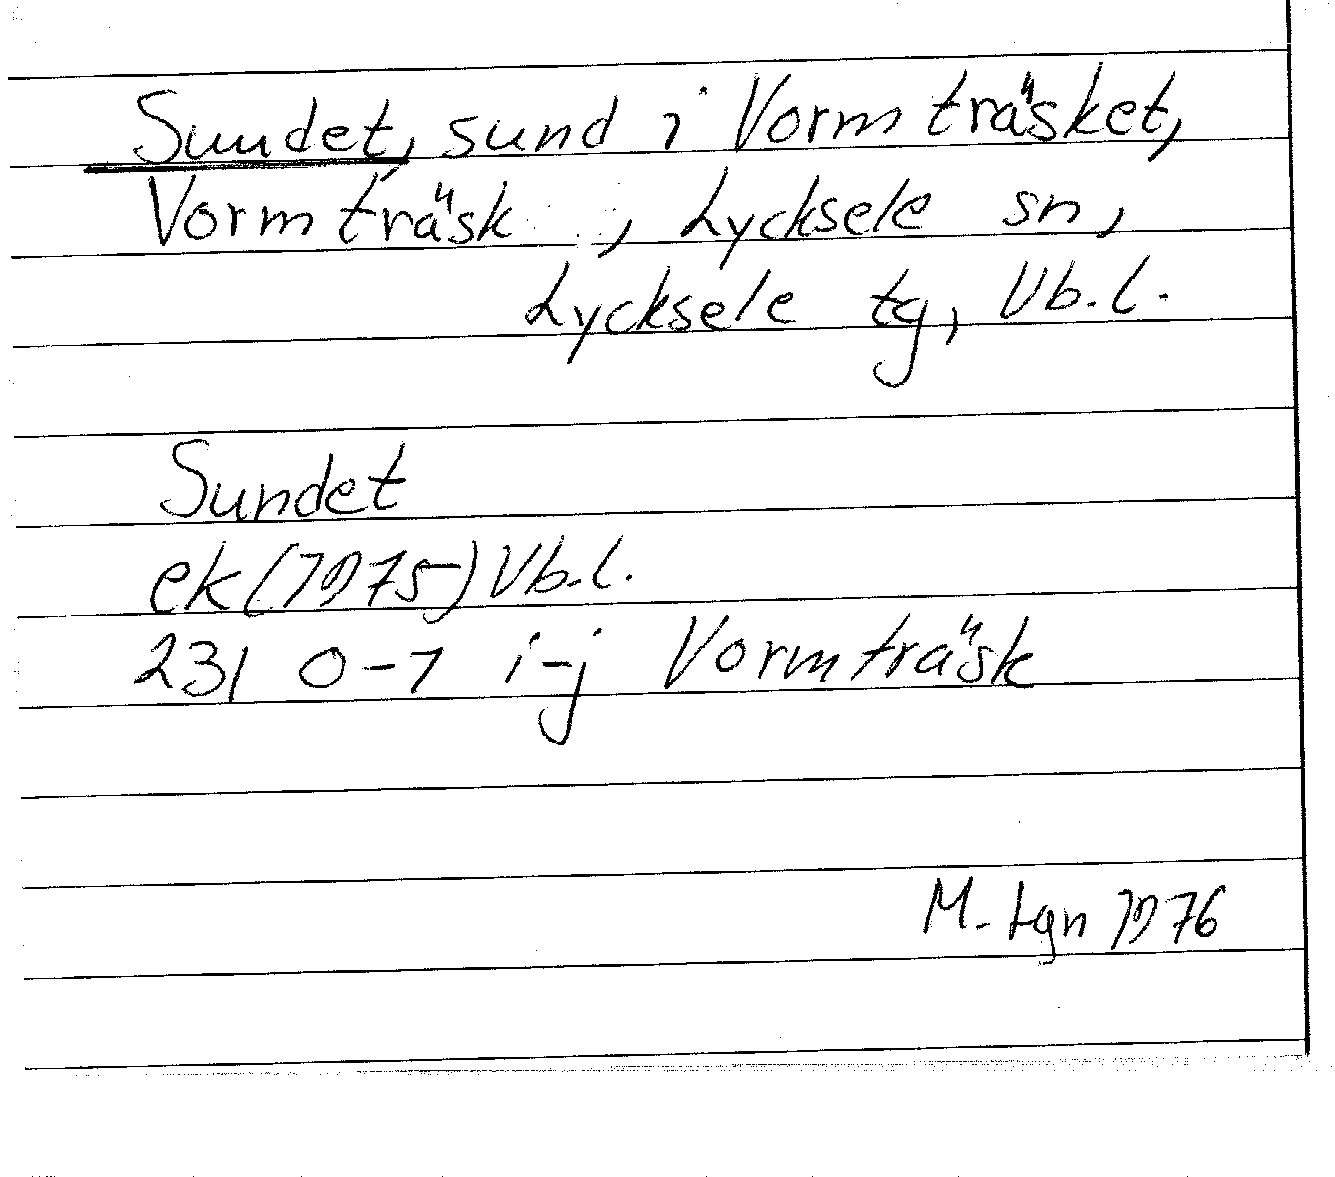 Sundet, sund i Vormträsket,
Vormträsk , Lycksele sn,
Lycksele tg, Vb.l.
Sundet
ek(1975) Vb.l.
231 0-1 i-j Vormträsk
M. Lgn 1976